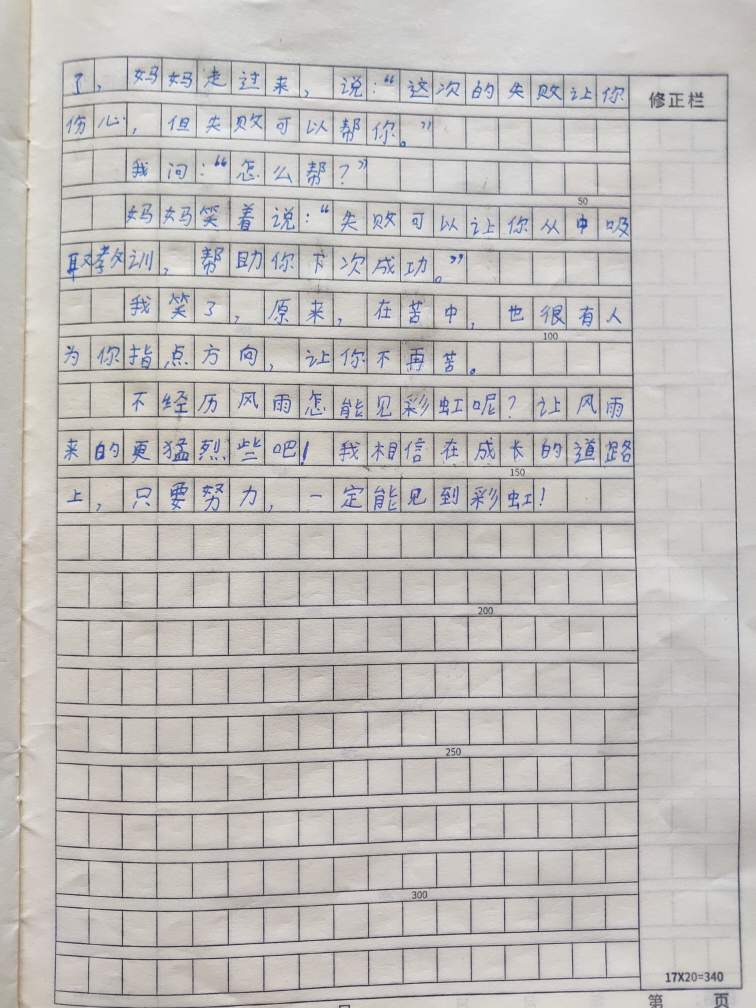 了，妈妈走过来，说：“这次的失败让你
修正栏
伤心，但失败可以帮你。”
我问：“怎么帮？”
50
妈妈笑着说：“失败可以让你从中吸
取教训，帮助你下次成功。”
我笑了，原来，在苦中，也很有人
100
为你指点方向，让你不再苦。
不经历风雨怎能见彩虹呢？让风雨
来的更猛烈些吧！我相信在成长的道路
150
上，只要努力，一定能见到彩虹！
200
250
300
17X20=340
第 页